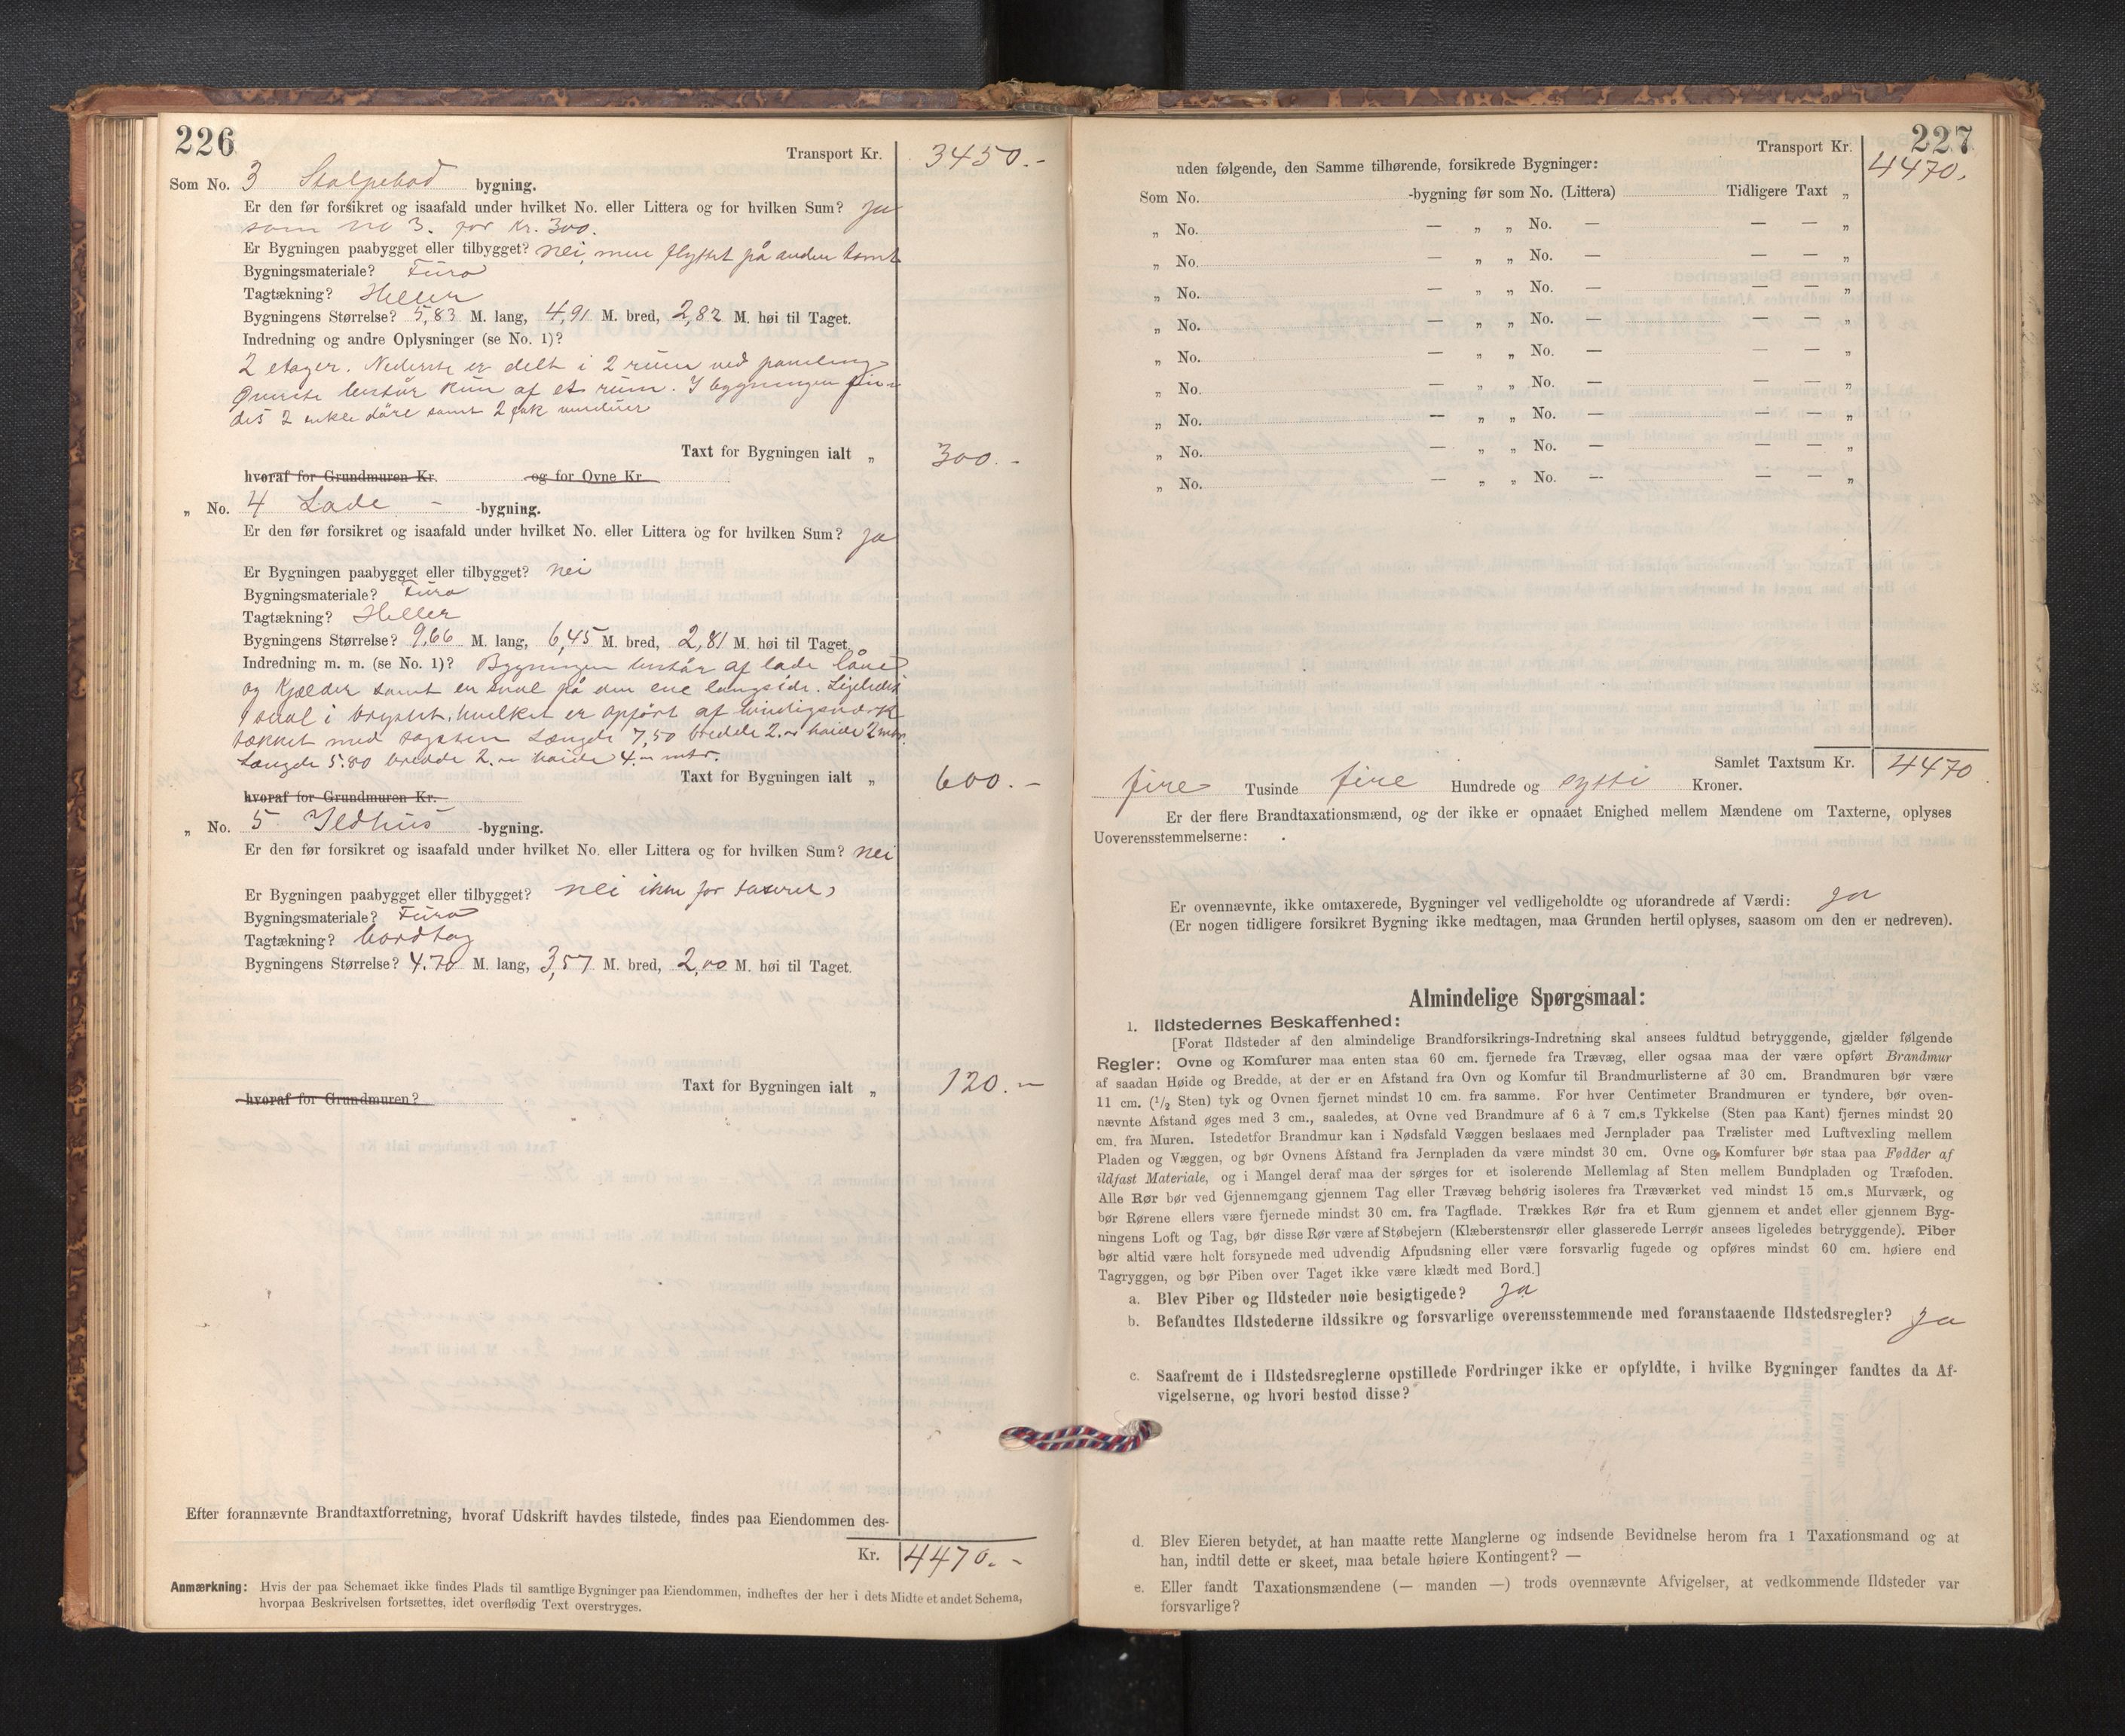 226
Transport Kr. 3450.-
Som No. 3 Stolpebod bygning.
Er den før forsikret og isaafald under hvilket No. eller Littera og for hvilken Sum? ja
som no 3. for Kr. 300.
Er Bygningen paabygget eller tilbygget? nei, men flyttet på anden tomt
Bygningsmateriale? Furu
Tagtækning? Heller
Bygningens Størrelse? 5,83 M. lang, 4,91 M. bred, 2,82 M. høi til Taget.
Indredning og andre Oplysninger (se No. 1)?
2 etager. Nederste er delt i 2 rum ved paneling
Øverste består kun af et rum. I bygningen fin-
des 2 enkle døre samt 2 fak vinduer
Taxt for Bygningen ialt „ 300.-
hvoraf for Grundmuren Kr. og for Ovne Kr.
„ No. 4 Lade - -bygning.
Er den før forsikret og isaafald under hvilket No. eller Littera og for hvilken Sum? ja
Er Bygningen paabygget eller tilbygget? nei
Bygningsmateriale? Furu
Tagtækning? Heller
Bygningens Størrelse? 9,66 M. lang, 6,45 M. bred, 2,81 M. høi til Taget.
Indredning m. m. (se No. 1)? Bygningen består af lade låve
og Kjælder samt en sval på den ene langside. Ligeledes
sval i brystet, hvilket er opført af bindigsværk
tækket med tagsten Længde 7,50 bredde 2.- høide 2 mtr.
Længde 5.80 bredde 2.- høide 4.- mtr.
Taxt for Bygningen ialt „ 600.-
hvoraf for Grundmuren Kr.
„ No. 5 Ildhus -bygning.
Er den før forsikret og isaafald under hvilket No. eller Littera og for hvilken Sum? nei
Er Bygningen paabygget eller tilbygget? nei ikke før taxeret
Bygningsmateriale? Furu
Tagtækning? bordtag
Bygningens Størrelse? 4.70 M. lang, 3,57 M. bred, 2,00 M. høi til Taget.
Taxt for Bygningen ialt „ 120.-
hvoraf for Grundmuren?
Efter forannævnte Brandtaxtforretning, hvoraf Udskrift havdes tilstede, findes paa Eiendommen des-
Kr. 4470.-
Anmærkning: Hvis der paa Schemaet ikke findes Plads til samtlige Bygninger paa Eiendommen, indheftes der her i dets Midte et andet Schema,
hvorpaa Beskrivelsen fortsættes, idet overflødig Text overstryges.
227
Transport Kr. 4470.
uden følgende, den Samme tilhørende, forsikrede Bygninger:
Som No. -bygning før som No. (Littera) Tidligere Taxt „
„ No. — „ „ No. — — — „
„ No. — „ „ No. — — — „
„ No. — „ „ No. — — — „
„ No. — „ „ No. — — — „
„ No. — „ „ No. — — — „
„ No. — „ „ No. — — — „
„ No. — „ „ No. — — — „
„ No. — „ „ No. — — — „
„ No. — „ „ No. — — — „
Samlet Taxtsum Kr. 4470
fire Tusinde fire Hundrede og sytti Kroner.
Er der flere Brandtaxationsmænd, og der ikke er opnaaet Enighed mellem Mændene om Taxterne, oplyses
Uoverensstemmelserne:
Er ovennævnte, ikke omtaxerede, Bygninger vel vedligeholdte og uforandrede af Værdi: ja
(Er nogen tidligere forsikret Bygning ikke medtagen, maa Grunden hertil oplyses, saasom om den er nedreven).
Almindelige Spørgsmaal:
1. Ildstedernes Beskaffenhed:
[Forat Ildsteder af den almindelige Brandforsikrings-Indretning skal ansees fuldtud betryggende, gjælder følgende
Regler: Ovne og Komfurer maa enten staa 60 cm. fjernede fra Trævæg, eller ogsaa maa der være opført Brandmur
af saadan Høide og Bredde, at der er en Afstand fra Ovn og Komfur til Brandmurlisterne af 30 cm. Brandmuren bør være
11 cm. (1/2 Sten) tyk og Ovnen fjernet mindst 10 cm. fra samme. For hver Centimeter Brandmuren er tyndere, bør oven-
nævnte Afstand øges med 3 cm., saaledes, at Ovne ved Brandmure af 6 à 7 cm.s Tykkelse (Sten paa Kant) fjernes mindst 20
cm. fra Muren. Istedetfor Brandmur kan i Nødsfald Væggen beslaaes med Jernplader paa Trælister med Luftvexling mellem
Pladen og Væggen, og bør Ovnens Afstand fra Jernpladen da være mindst 30 cm. Ovne og Komfurer bør staa paa Fødder af
ildfast Materiale, og i Mangel deraf maa der sørges for et isolerende Mellemlag af Sten mellem Bundpladen og Træfoden.
Alle Rør bør ved Gjennemgang gjennem Tag eller Trævæg behørig isoleres fra Træværket ved mindst 15 cm.s Murværk, og
bør Rørene ellers være fjernede mindst 30 cm. fra Tagflade. Trækkes Rør fra et Rum gjennem et andet eller gjennem Byg-
ningens Loft og Tag, bør disse Rør være af Støbejern (Klæberstensrør eller glasserede Lerrør ansees ligeledes betryggende). Piber
bør altid være helt forsynede med udvendig Afpudsning eller være forsvarlig fugede og opføres mindst 60 cm. høiere end
Tagryggen, og bør Piben over Taget ikke være klædt med Bord.]
a. Blev Piber og Ildsteder nøie besigtigede? ja
b. Befandtes Ildstederne ildssikre og forsvarlige overensstemmende med foranstaaende Ildstedsregler? ja
c. Saafremt de i Ildstedsreglerne opstillede Fordringer ikke er opfyldte, i hvilke Bygninger fandtes da Af-
vigelserne, og hvori bestod disse?
d. Blev Eieren betydet, at han maatte rette Manglerne og indsende Bevidnelse herom fra 1 Taxationsmand og at
han, indtil dette er skeet, maa betale høiere Kontingent? —
e. Eller fandt Taxationsmændene (— manden —) trods ovennævnte Afvigelser, at vedkommende Ildsteder var
forsvarlige?